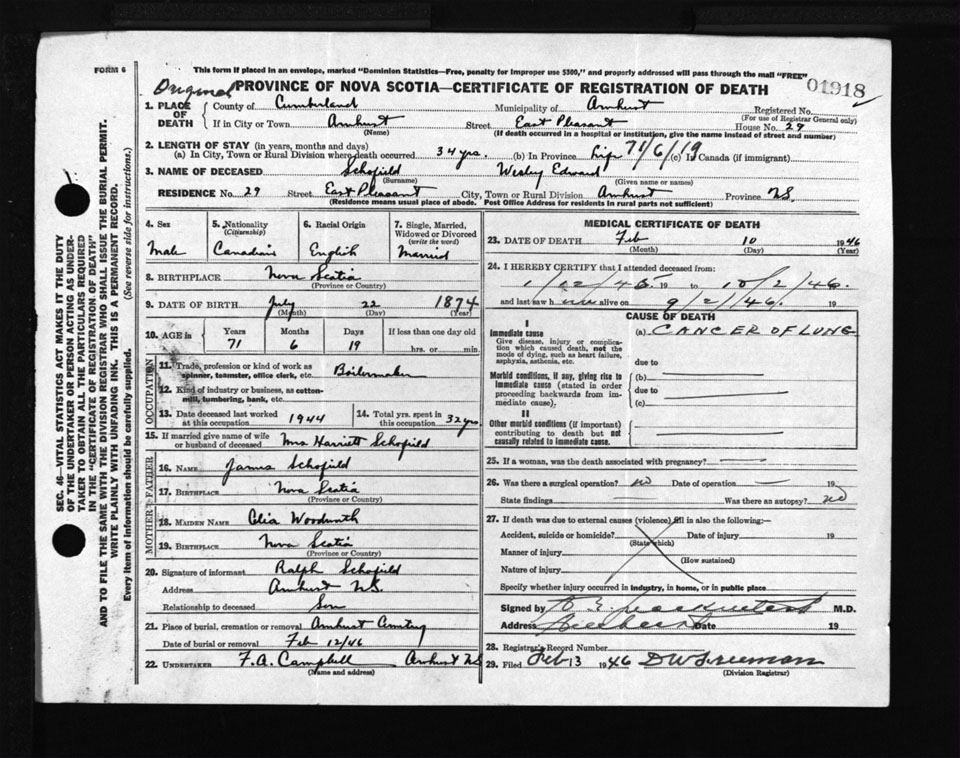 FORM 6
This form if placed in an envelope, marked "Dominion Statistics—Free, penalty for improper use $300," and properly addressed will pass through the mail "FREE"
Original PROVINCE OF NOVA SCOTIA—CERTIFICATE OF REGISTRATION OF DEATH 01918
1. PLACE OF DEATH County of Cumberland Municipality of Amherst Registered No.
(For use of Registrar General only)
If in City or Town Amherst Street East Pleasant House No. 29
(Name) (If death occurred in a hospital or institution, give the name instead of street and number)
2. LENGTH OF STAY (in years, months and days)
(a) In City, Town or Rural Division where death occurred 34 yrs. (b) In Province Life 71/6/19 (c) In Canada (if immigrant)
3. NAME OF DECEASED Schofield Wesley Edward
(Surname) (Given name or names)
RESIDENCE No. 29 Street East Pleasant City, Town or Rural Division Amherst Province N.S.
(Residence means usual place of abode. Post Office Address for residents in rural parts not sufficient)
4. Sex 5. Nationality (Citizenship) 6. Racial Origin 7. Single, Married, Widowed or Divorced (write the word)
Male Canadian English Married
8. BIRTHPLACE Nova Scotia
(Province or Country)
9. DATE OF BIRTH July 22 1874
(Month) (Day) (Year)
10. AGE in Years Months Days If less than one day old
71 6 19 hrs. or min.
OCCUPATION
11. Trade, profession or kind of work as spinner, teamster, office clerk, etc. Boilermaker
12. Kind of industry or business, as cotton-mill, tumbering, bank, etc.
13. Date deceased last worked at this occupation 1944 14. Total yrs. spent in this occupation 32 yrs.
15. If married give name of wife or husband of deceased Mrs Harriett Schofield
FATHER
16. NAME James Schofield
17. BIRTHPLACE Nova Scotia
(Province or Country)
MOTHER
18. MAIDEN NAME Celia Woodworth
19. BIRTHPLACE Nova Scotia
(Province or Country)
20. Signature of informant Ralph Schofield
Address Amherst N.S.
Relationship to deceased Son
21. Place of burial, cremation or removal Amherst Cemetery
Date of burial or removal Feb 12/46
22. UNDERTAKER F. A. Campbell Amherst N.S
(Name and address)
MEDICAL CERTIFICATE OF DEATH
23. DATE OF DEATH Feb 10 1946
(Month) (Day) (Year)
24. I HEREBY CERTIFY that I attended deceased from:
1/02/45 19 to 10/2/46. 19
and last saw h im alive on 9/2/46. 19
CAUSE OF DEATH
I
Immediate cause (a) CANCER OF LUNG
Give disease, injury or complication which caused death, not the mode of dying, such as heart failure, asphyxia, asthenia, etc.
due to
Morbid conditions, if any, giving rise to immediate cause (stated in order proceeding backwards from immediate cause).
(b)
due to
(c)
II
Other morbid conditions (if important) contributing to death but not causally related to immediate cause.
25. If a woman, was the death associated with pregnancy?
26. Was there a surgical operation? no Date of operation 19
State findings Was there an autopsy? no
27. If death was due to external causes (violence) fill in also the following:—
Accident, suicide or homicide? Date of injury 19
(State which)
Manner of injury
(How sustained)
Nature of injury
Specify whether injury occurred in industry, in home, or in public place
Signed by M.D.
Address Amherst Date 19
28. Registrar's Record Number
29. Filed Feb 13 1946 D W Freeman
(Division Registrar)
SEC. 46—VITAL STATISTICS ACT MAKES IT THE DUTY
OF THE UNDERTAKER OR PERSON ACTING AS UNDER-
TAKER TO OBTAIN ALL THE PARTICULARS REQUIRED
IN THE "CERTIFICATE OF REGISTRATION OF DEATH"
AND TO FILE THE SAME WITH THE DIVISION REGISTRAR WHO SHALL ISSUE THE BURIAL PERMIT.
WRITE PLAINLY WITH UNFADING INK. THIS IS A PERMANENT RECORD.
Every item of information should be carefully supplied. (See reverse side for instructions.)